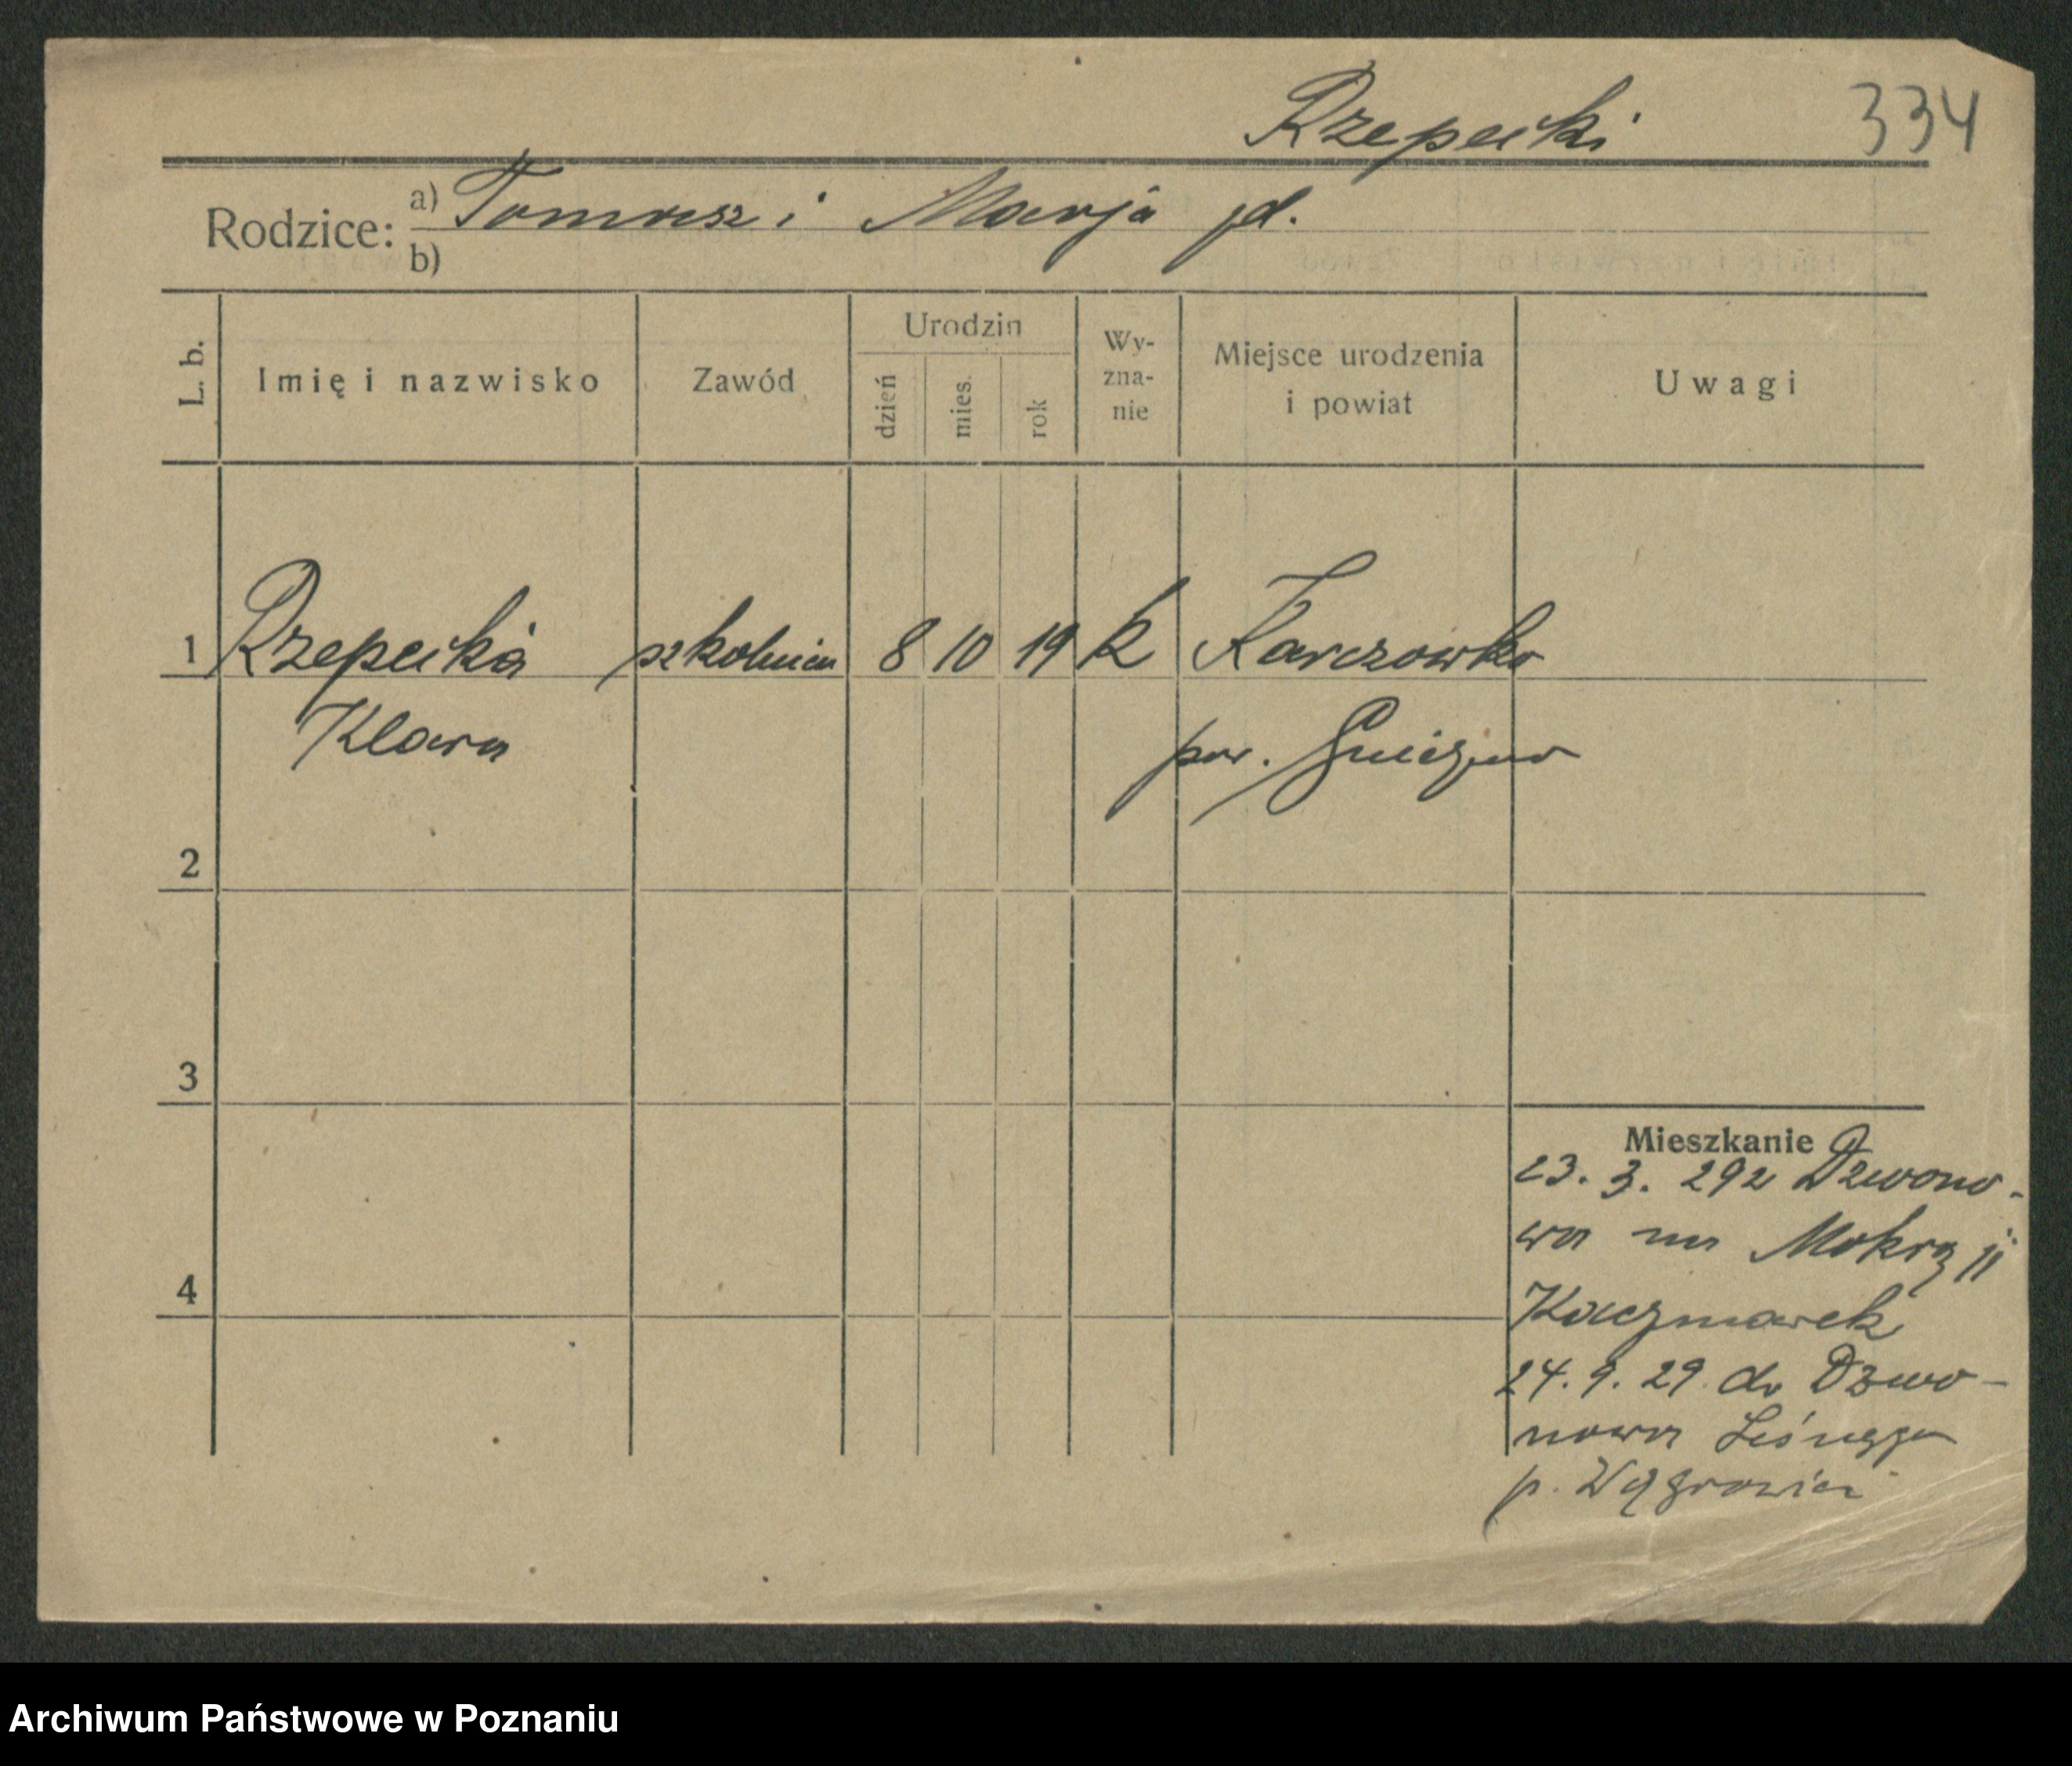 Rzepecki 334
Rodzice: a) Tomasz i Marja
b)
L. b. Imię i nazwisko Zawód Urodzin dzień mies. rok Wy-zna-nie Miejsce urodzenia i powiat Uwagi
1 Rzepecka 8 10 19 k Karczowko
Klara pow. Gniezno
2
3
4
Mieszkanie
23. 3. 29 z Dzwono-
wa na Mokrą
Kaczmarek
24. 9. 29 do Dzwo-
nowa Leśnego
p. Wągrowiec
Archiwum Państwowe w Poznaniu